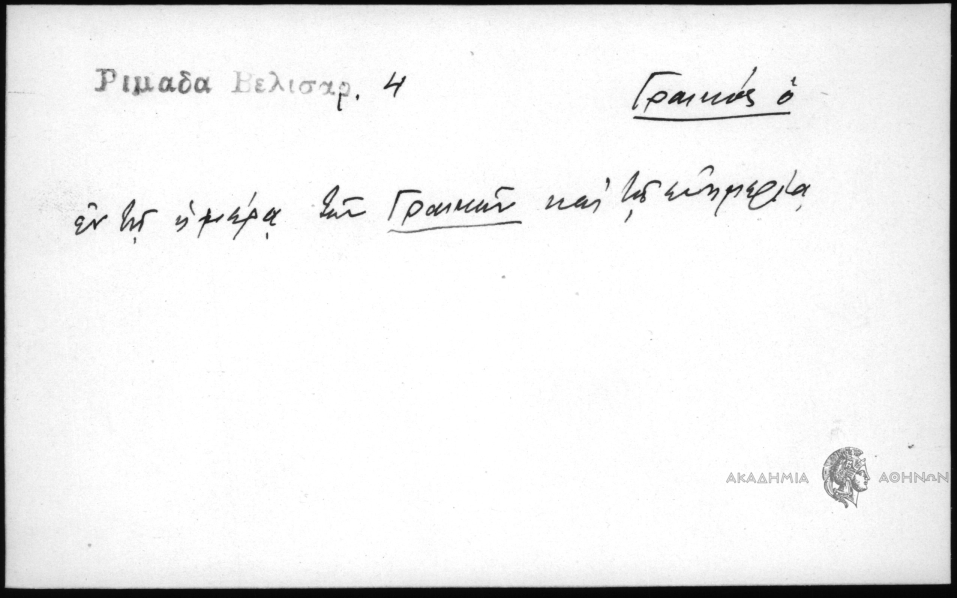 Ριμαδα Βελισαρ. 4
Γραικός ὁ
ἐν τῇ ἡμέρᾳ τῶν Γραικῶν καὶ τῇ εὐημερίᾳ
ΑΚΑΔΗΜΙΑ ΑΘΗΝΩΝ